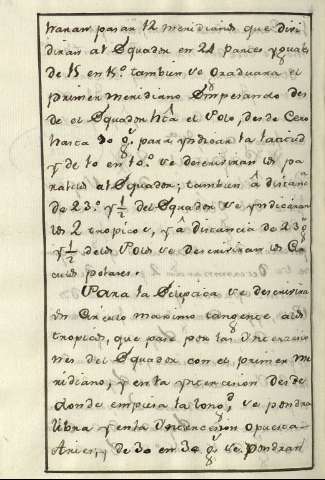 haran pasar 12 meridianos que divi
diran al Equador en 24 partes yguales
de 15 en 15.º tambien se Graduara el
primer meridiano Empesando des
de el Equador htâ el Polo, desde Cero
hasta 90 g.ˢ para yndicar la latitud
y de 10 en 10.º se descriviran los pa
ralelos al Equador; tambien â distancia
de 23.º y ½ del Equador se yndicaran
los 2 tropicos, y â distancia de 23 g.ˢ
y ½ delos Polos se descriviran los Cir
culos polares.
Para la Ecliptica se descrivira
un Circulo maximo tangente alos
tropicos, que pase por las Yntersecio
nes del Equador con el primer me
ridiano, y en la yntersecion desde
donde empiesa la long.ᵈ se pondra
libra y en la Yntersecion opuesta
Aries, y de 30 en 30 g.ˢ se pondran